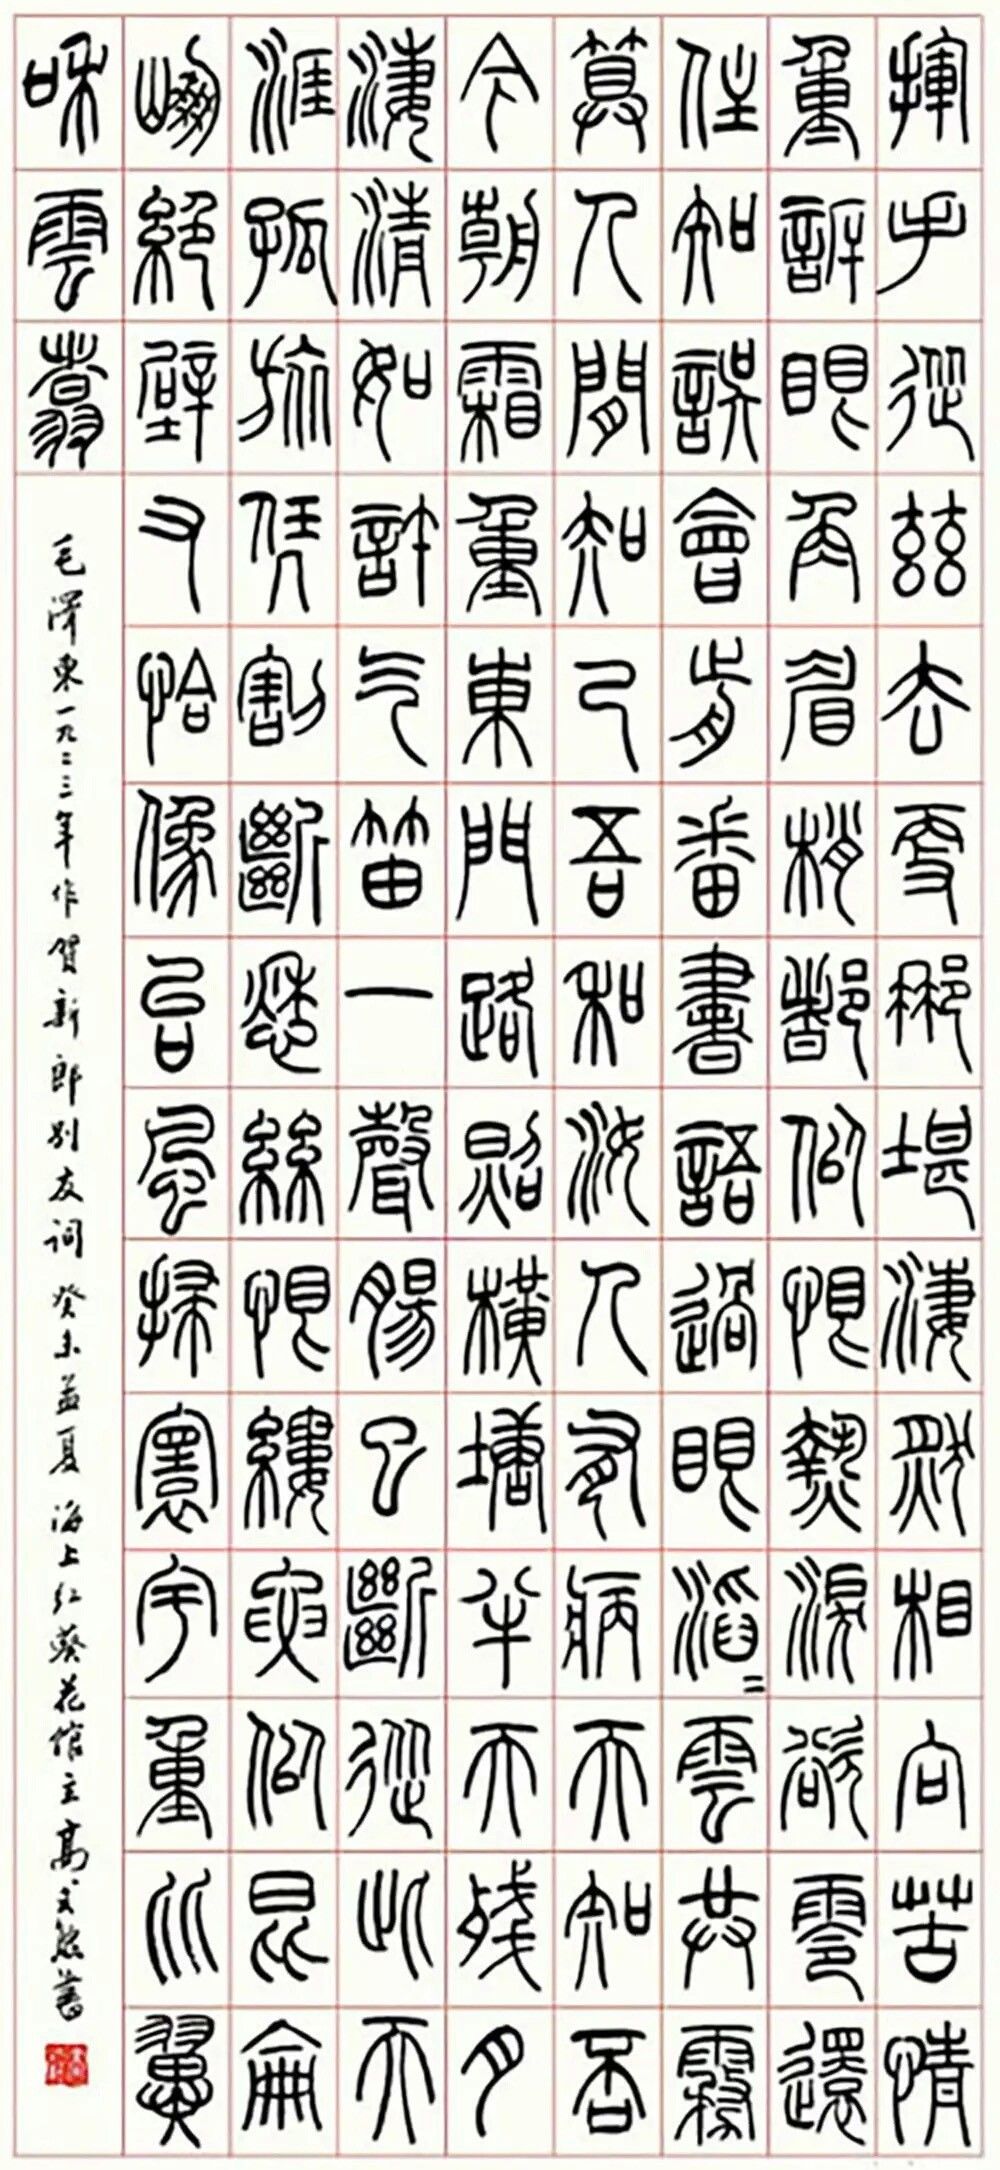 揮手從茲去更那堪淒然相向苦情
重訴眼角眉梢都似恨熱淚欲零還
住知誤會前番書語過眼滔〻雲共霧
算人間知己吾和汝人有病天知否
今朝霜重東門路照橫塘半天殘月
淒清如許气笛一聲腸已斷從此天
涯孤旅凭割斷愁絲恨縷要似昆侖
崩絕壁又恰像台風掃寰宇重比翼
和雲翥
毛澤東一九二三年作賀新郎別友詞 癸未孟夏 海上红葵花館主高式熊書